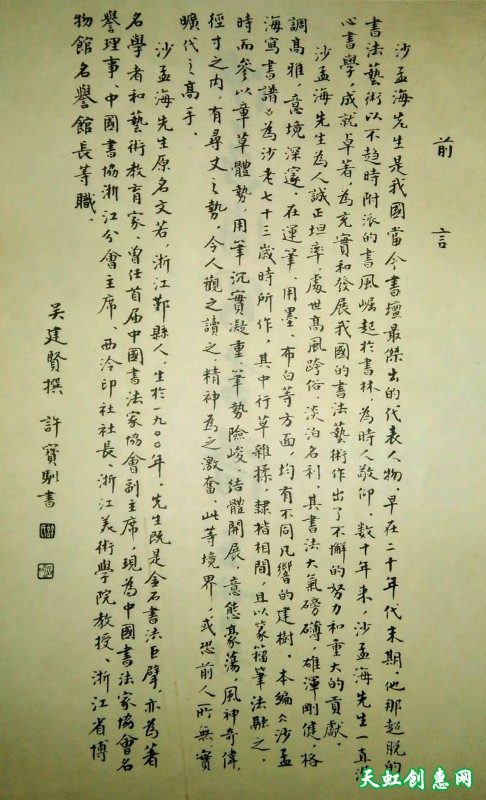 前言
沙孟海先生是我國當今書壇最傑出的代表人物，早在二十年代末期，他那超脫的
書法藝術以不趨時附派的書風崛起於書林，為時人敬仰。数十年来，沙孟海先生一直潛
心書學，成就卓著，為充實和發展我國的書法藝術作出了不懈的努力和重大的貢獻。
沙孟海先生為人誠正坦率，處世髙風跨俗，淡泊名利，其書法大氣磅礴，雄渾剛健，格
調髙雅，意境深邃，在運筆、用墨、布白等方面，均有不同凡響的建樹。本編《沙孟
海寫書譜》為沙老七十三歲時所作，其中行草雜揉，隸楷相間，且以篆籀筆法融之，
時而參以章草體勢，用筆沉實凝重，筆勢險峻，結體開展，意態豪蕩，風神奇偉，
徑寸之内，有尋丈之勢，令人觀之讀之，精神為之激奮，此等境界，或恐前人所無，實
曠代之髙手。
沙孟海先生原名文若，浙江鄞縣人，生於一九〇〇年，先生既是金石書法巨擘，亦為著
名學者和藝術教育家，曾任首届中國書法家協會副主席，現為中國書法家協會名
譽理事、中國書協浙江分會主席、西泠印社社長、浙江美術學院教授、浙江省博
物館名譽館長等職。
吴建賢撰 許寶馴書
天虹创惠网